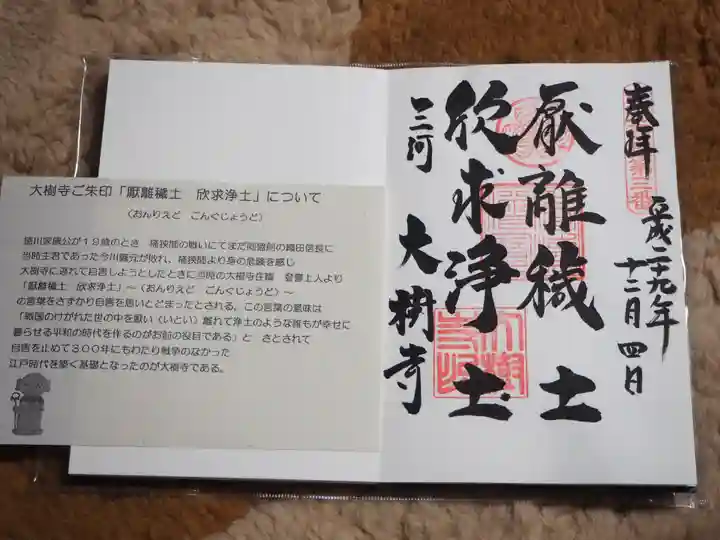 大樹寺ご朱印「厭離穢土　欣求浄土」について
（おんりえど　ごんぐじょうど）
徳川家康公が１９歳のとき　桶狭間の戦いにてまだ同盟前の織田信長に
当時主君であった今川義元が敗れ、桶狭間より身の危険を感じ
大樹寺に逃れて自害しようとしたときに当時の大樹寺住職　登誉上人より
「厭離穢土　欣求浄土」～（おんりえど　ごんぐじょうど）～
の言葉をさずかり自害を思いとどまったとされる。この言葉の意味は
「戦国のけがれた世の中を厭い（いとい）離れて浄土のような誰もが幸せに
暮らせる平和の時代を作るのがお前の役目である」と　さとされて
自害を止めて３００年にもわたり戦争のなかった
江戸時代を築く基礎となったのが大樹寺である。
奉拝
第二番
平成二十九年
十二月四日
厭離穢土
欣求浄土
三河
大樹寺